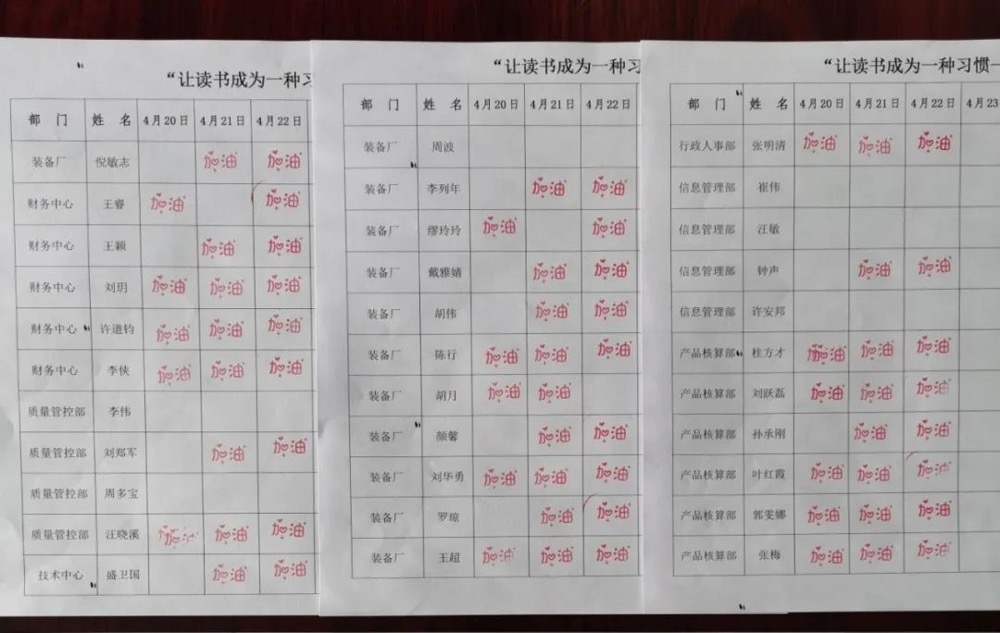 “让读书成为一种习
部 门 姓 名 4月20日 4月21日 4月22日
装备厂 倪敏志 加油 加油
财务中心 王睿 加油 加油
财务中心 王颖 加油 加油
财务中心 刘玥 加油 加油 加油
财务中心 许道钧 加油 加油 加油
财务中心 李侠 加油 加油 加油
质量管控部 李伟
质量管控部 刘郑军 加油 加油
质量管控部 周多宝
质量管控部 汪晓溪 加油 加油 加油
技术中心 盛卫国 加油 加油
“让读书成为一种习
部 门 姓 名 4月20日 4月21日 4月22日
装备厂 周波
装备厂 李列年 加油 加油
装备厂 缪玲玲 加油 加油
装备厂 戴雅婧 加油 加油
装备厂 胡伟 加油 加油
装备厂 陈行 加油 加油 加油
装备厂 胡月 加油 加油
装备厂 颜馨 加油 加油
装备厂 刘华勇 加油 加油 加油
装备厂 罗琼 加油 加油
装备厂 王超 加油 加油 加油
“让读书成为一种习惯
部 门 姓 名 4月20日 4月21日 4月22日 4月23
行政人事部 张明清 加油 加油 加油
信息管理部 崔伟
信息管理部 汪敏
信息管理部 钟声 加油 加油
信息管理部 许安邦
产品核算部 桂方才 加油 加油 加油
产品核算部 刘跃磊 加油 加油 加油
产品核算部 孙承刚 加油 加油
产品核算部 叶红霞 加油 加油 加油
产品核算部 郭雯娜 加油 加油 加油
产品核算部 张梅 加油 加油 加油